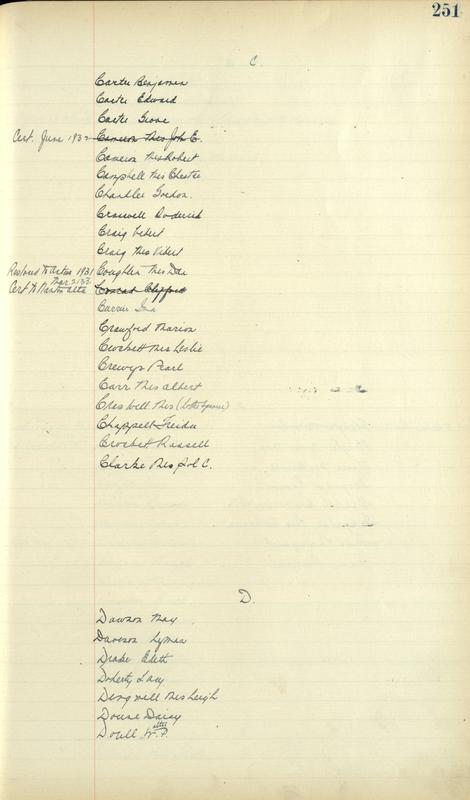 251
C.
Carter Benjamin
Carter Edward
Carter
Cert. June 1932 Cameron Mrs John E.
Cameron Mrs Robert
Campbell Mrs Chester
Chandler Gordon.
Craswell Roderick
Craig
Craig Mrs
Restored to 1931 Coughlin Mrs
Mar 2.33
Cert to Conrad Clifford
Currie
Crawford Marion
Crockett Mrs Leslie
Crewys Pearl
Carr Mrs Albert
Craswell Mrs (Lottie Spence)
Chappell Freida
Crockett Russell
Clarke Mrs C.
D.
Dawson May
Davison Lyman
Drake Edith
Doherty Lucy
Dingwell Mrs Leigh
Douse Daisy
Doull W. P.